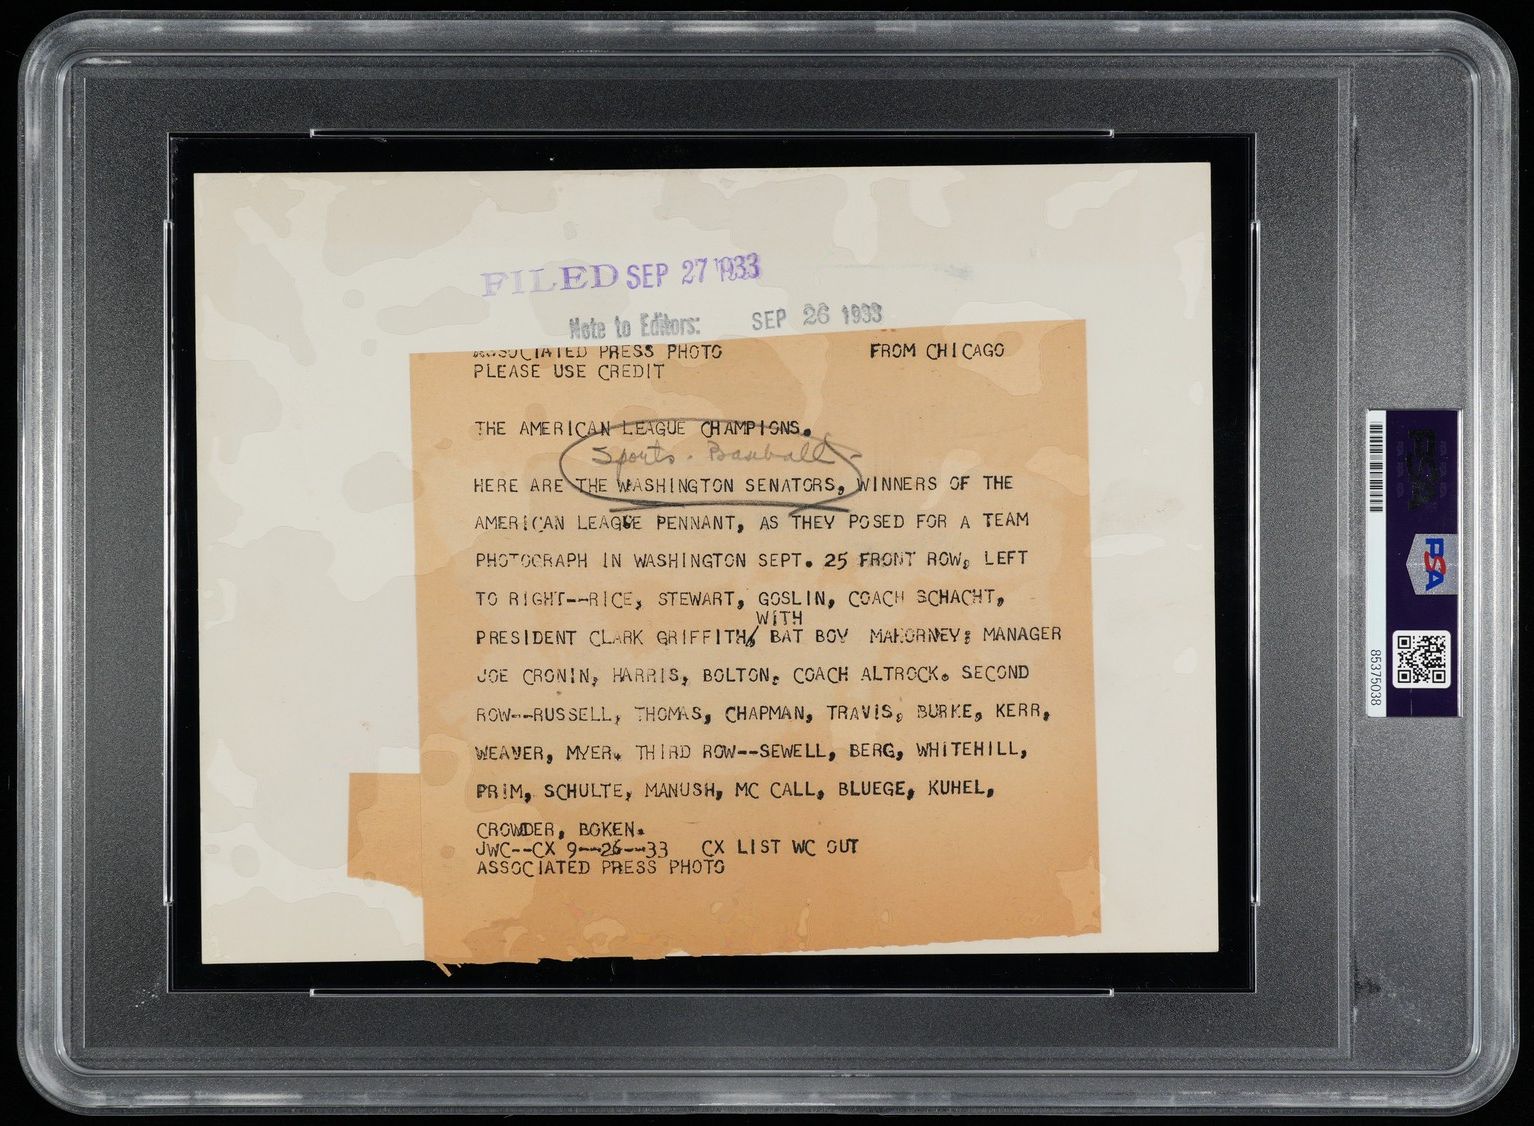 FILED SEP 27 1933
Note to Editors: SEP 26 1933
ASSOCIATED PRESS PHOTO FROM CHICAGO
PLEASE USE CREDIT
THE AMERICAN LEAGUE CHAMPIONS.
Sports - Baseball -
HERE ARE THE WASHINGTON SENATORS, WINNERS OF THE
AMERICAN LEAGUE PENNANT, AS THEY POSED FOR A TEAM
PHOTOGRAPH IN WASHINGTON SEPT. 25 FRONT ROW, LEFT
TO RIGHT--RICE, STEWART, GOSLIN, COACH SCHACHT,
WITH
PRESIDENT CLARK GRIFFITH, BAT BOY MAHORNEY; MANAGER
JOE CRONIN, HARRIS, BOLTON, COACH ALTROCK. SECOND
ROW--RUSSELL, THOMAS, CHAPMAN, TRAVIS, BURKE, KERR,
WEAVER, MYER. THIRD ROW--SEWELL, BERG, WHITEHILL,
PRIM, SCHULTE, MANUSH, MC CALL, BLUEGE, KUHEL,
CROWDER, BOKEN.
JWC--CX 9--26--33 CX LIST WC OUT
ASSOCIATED PRESS PHOTO
PSA
PSA
85375038